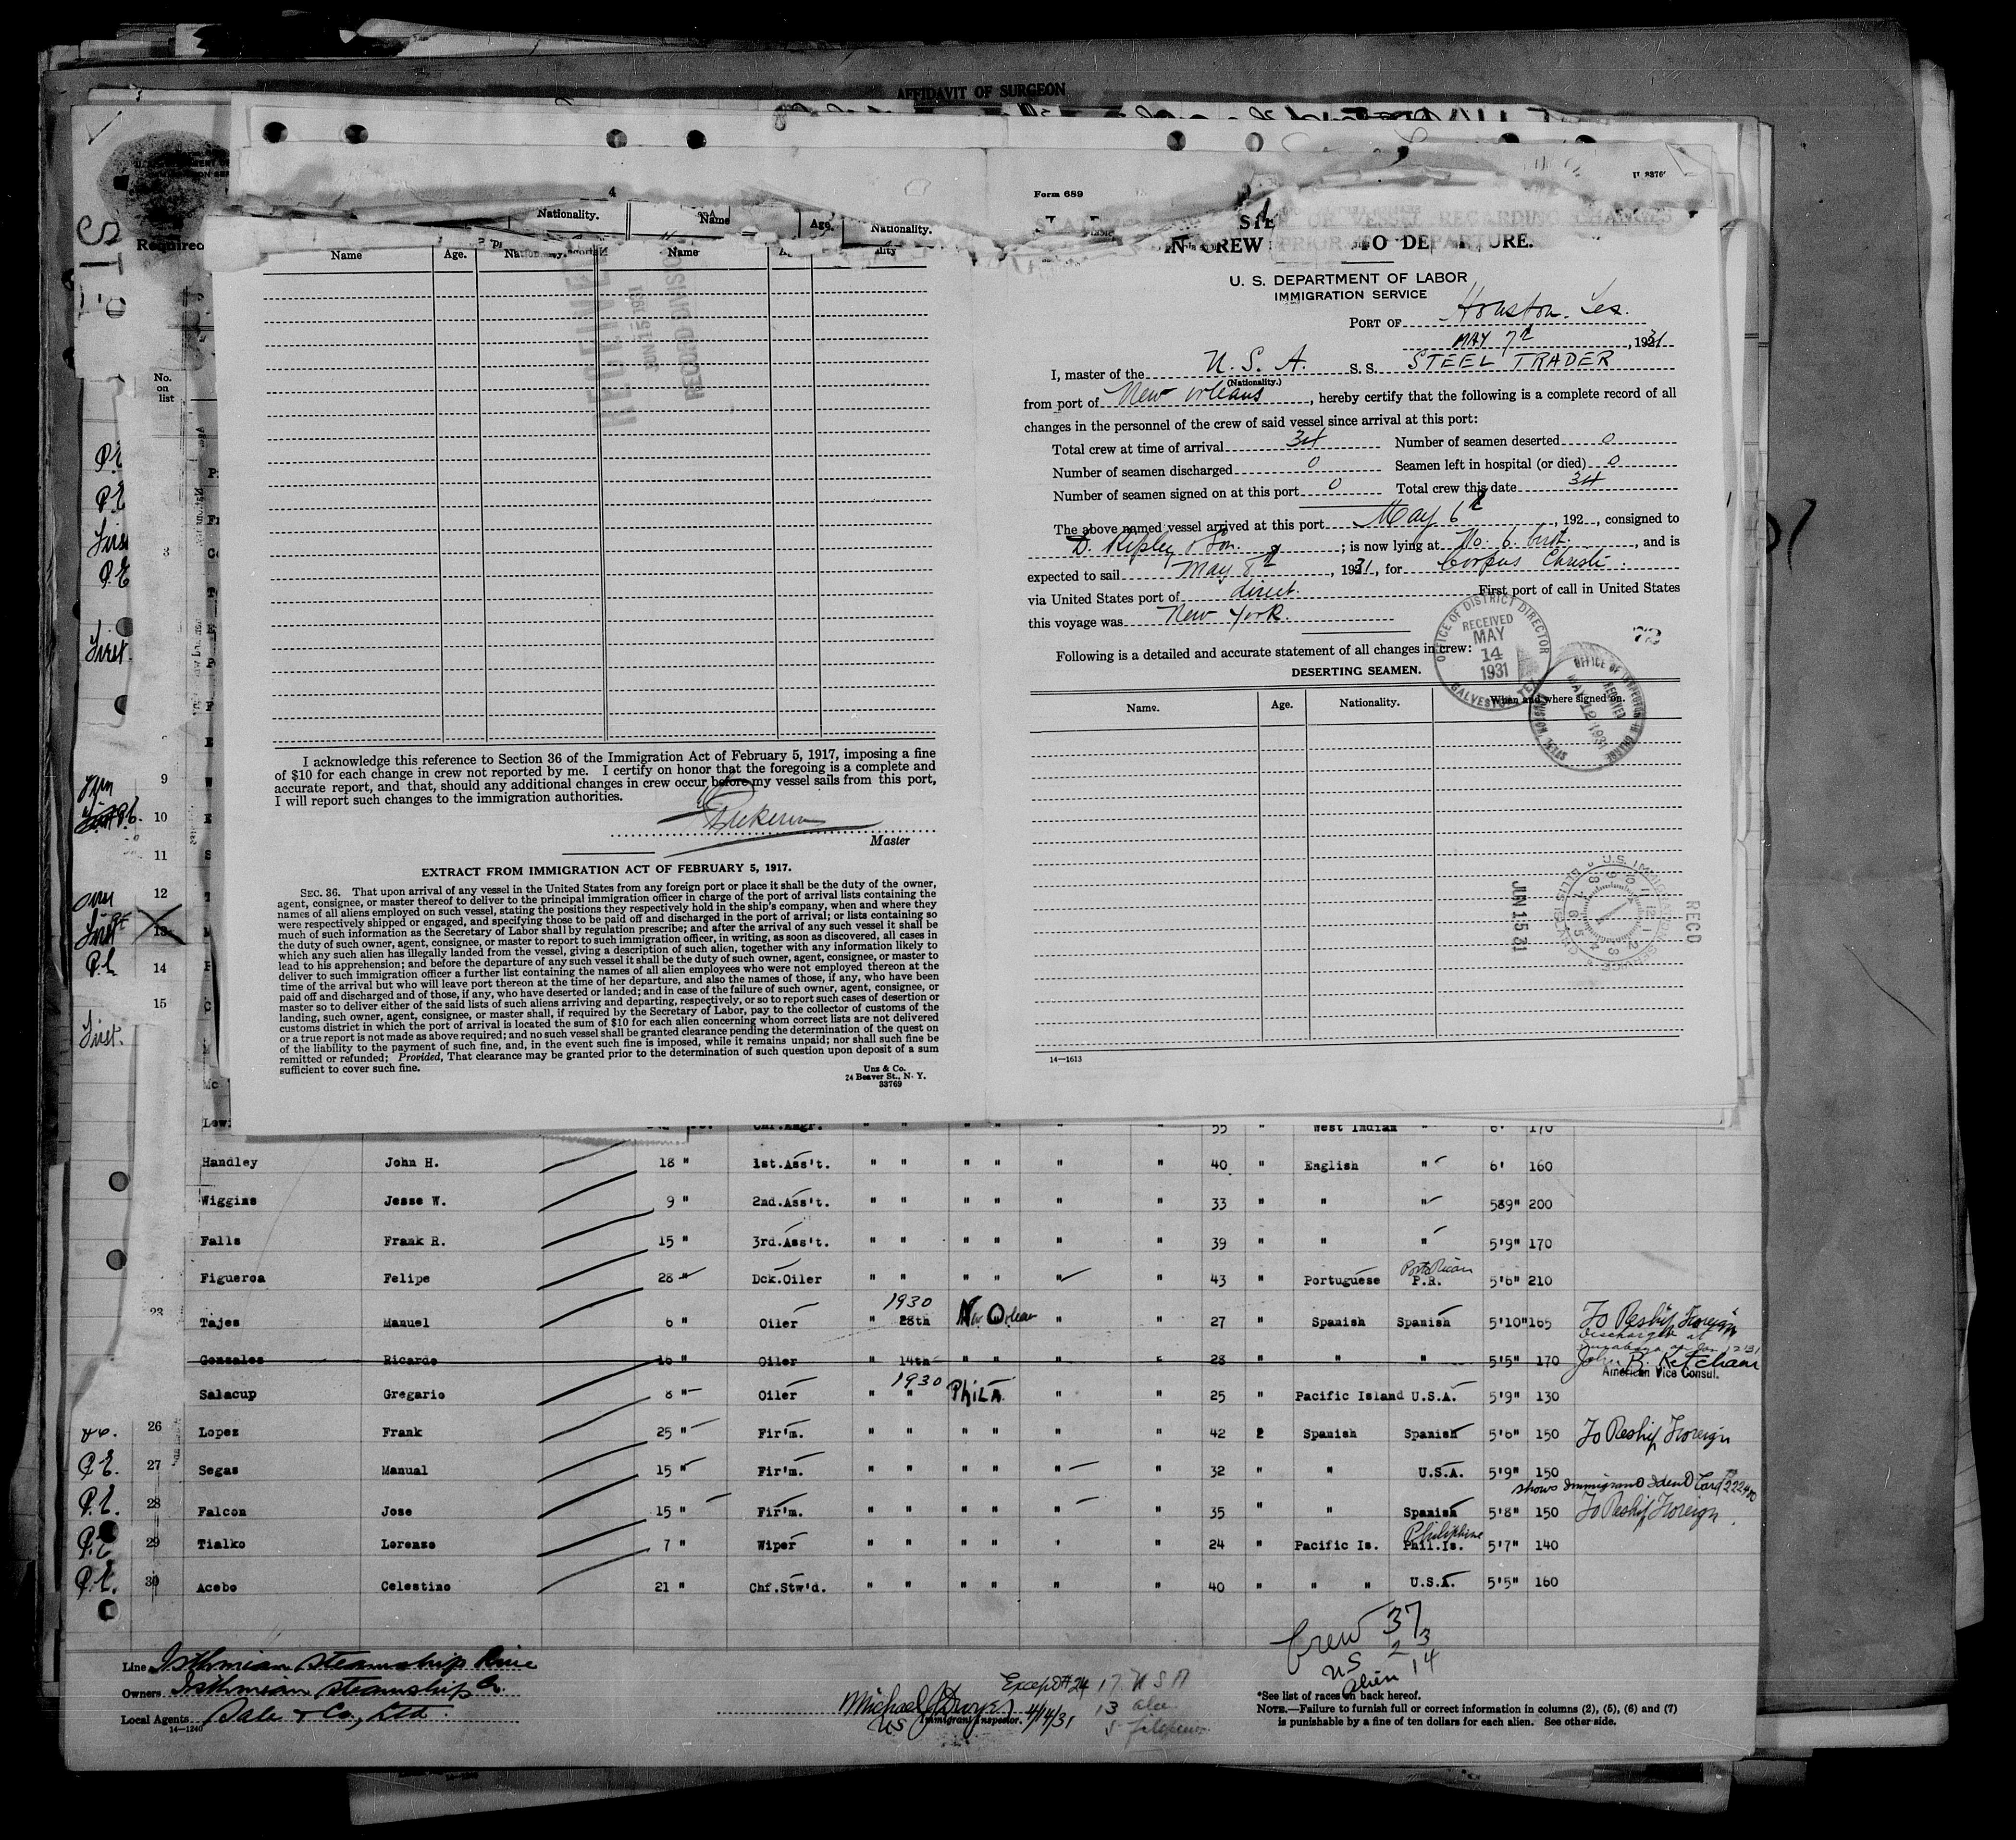 AFFIDAVIT OF SURGEON
Required
No.
on
list
3
9
10
11
12
13
14
15
First.
4
Nationality. Name Age. Nationality.
Name Age. Name
RECEIVED
JUN 15 1931
RECORD DIVISION
I acknowledge this reference to Section 36 of the Immigration Act of February 5, 1917, imposing a fine
of $10 for each change in crew not reported by me. I certify on honor that the foregoing is a complete and
accurate report, and that, should any additional changes in crew occur before my vessel sails from this port,
I will report such changes to the immigration authorities.
Master
EXTRACT FROM IMMIGRATION ACT OF FEBRUARY 5, 1917.
SEC. 36. That upon arrival of any vessel in the United States from any foreign port or place it shall be the duty of the owner,
agent, consignee, or master thereof to deliver to the principal immigration officer in charge of the port of arrival lists containing the
names of all aliens employed on such vessel, stating the positions they respectively hold in the ship's company, when and where they
were respectively shipped or engaged, and specifying those to be paid off and discharged in the port of arrival; or lists containing so
much of such information as the Secretary of Labor shall by regulation prescribe; and after the arrival of any such vessel it shall be
the duty of such owner, agent, consignee, or master to report to such immigration officer, in writing, as soon as discovered, all cases in
which any such alien has illegally landed from the vessel, giving a description of such alien, together with any information likely to
lead to his apprehension; and before the departure of any such vessel it shall be the duty of such owner, agent, consignee, or master to
deliver to such immigration officer a further list containing the names of all alien employees who were not employed thereon at the
time of the arrival but who will leave port thereon at the time of her departure, and also the names of those, if any, who have been
paid off and discharged and of those, if any, who have deserted or landed; and in case of the failure of such owner, agent, consignee, or
master so to deliver either of the said lists of such aliens arriving and departing, respectively, or so to report such cases of desertion or
landing, such owner, agent, consignee, or master shall, if required by the Secretary of Labor, pay to the collector of customs of the
customs district in which the port of arrival is located the sum of $10 for each alien concerning whom correct lists are not delivered
or a true report is not made as above required; and no such vessel shall be granted clearance pending the determination of the quest on
of the liability to the payment of such fine, and, in the event such fine is imposed, while it remains unpaid; nor shall such fine be
remitted or refunded; Provided, That clearance may be granted prior to the determination of such question upon deposit of a sum
sufficient to cover such fine.
Unz & Co.
24 Beaver St., N. Y.
33769
Form 689
OR VESSEL REGARDING CHANGES
IN CREW PRIOR TO DEPARTURE.
U. S. DEPARTMENT OF LABOR
IMMIGRATION SERVICE
PORT OF Houston. Tex.
MAY 7th, 1931
I, master of the U. S. A. S. S. STEEL TRADER
(Nationality.)
from port of New Orleans, hereby certify that the following is a complete record of all
changes in the personnel of the crew of said vessel since arrival at this port:
Total crew at time of arrival 34 Number of seamen deserted 0
Number of seamen discharged 0 Seamen left in hospital (or died) 0
Number of seamen signed on at this port 0 Total crew this date 34
The above named vessel arrived at this port May 6th, 192 , consigned to
D. Ripley & Son. ; is now lying at No. 6. , and is
expected to sail May 8th, 1931, for Corpus Christi.
via United States port of direct. First port of call in United States
this voyage was New York.
OFFICE OF DISTRICT DIRECTOR
RECEIVED
MAY
14
1931
GALVESTON TEX
72
OFFICE OF INSPECTOR IN CHARGE
RECEIVED
MAY 12 1931
Following is a detailed and accurate statement of all changes in crew:
DESERTING SEAMEN.
Name. Age. Nationality. When and where signed on.
U.S. IMMIGRATION SERVICE
ELLIS ISLAND
JUN 15 31
RECD
14—1613
55 " West Indian " 6' 170
Handley John H. 18 " 1st.Ass't. " " " " " " 40 " English " 6' 160
Wiggins Jesse W. 9 " 2nd.Ass't. " " " " " " 33 " " " 5'9" 200
Falls Frank R. 15 " 3rd.Ass't. " " " " " " 39 " " " 5'9" 170
Figueroa Felipe 28 " Dck.Oiler " " " " " " 43 " Portuguese Porto Rican P.R. 5'6" 210
23 Tajes Manuel 6 " Oiler " 1930 28th New Orleans " " 27 " Spanish Spanish 5'10" 165 To Reship Foreign
Gonzales Ricardo 16 " Oiler " 14th " " " " 28 " " " 5'5" 170 Discharged at
John B. Ketcham
American Vice Consul.
Salacup Gregario 8 " Oiler " 1930 " Phila " " 25 " Pacific Island U.S.A. 5'9" 130
26 Lopez Frank 25 " Fir'm. " " " " " " 42 2 Spanish Spanish 5'6" 150 To Reship Foreign
P.E. 27 Segas Manual 15 " Fir'm. " " " " " " 32 " " U.S.A. 5'9" 150
shows Immigrant Ident Card
P.E. 28 Falcon Jose 15 " Fir'm. " " " " " " 35 " " Spanish 5'8" 150 To Reship Foreign
P.E. 29 Tialko Lorenzo 7 " Wiper " " " " " " 24 " Pacific Is. Philippine Phil.Is. 5'7" 140
P.E. 30 Acebo Celestino 21 " Chf.Stw'd. " " " " " " 40 " " " U.S.A. 5'5" 160
Crew 37
US 23
Alien 14
Line Isthmian Steamship Line
Owners Isthmian Steamship Co.
Local Agents Dale & Co., Ltd.
14—1240
Except #24
17 USA
13 alien
5 filipino
Michael J. 4/14/31
US Immigrant Inspector.
*See list of races on back hereof.
NOTE.—Failure to furnish full or correct information in columns (2), (5), (6) and (7)
is punishable by a fine of ten dollars for each alien. See other side.